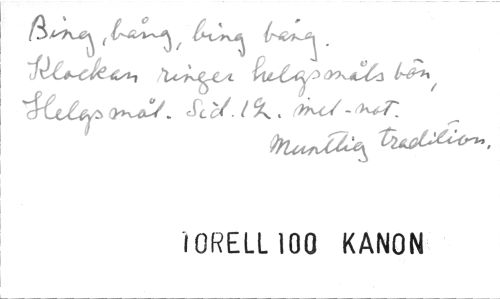 Bing, bång, bing bång.
Klockan ringer helgsmåls bön,
Helgsmål. Sid. 12. mel-not.
Muntlig tradition.
TORELL 100 KANON